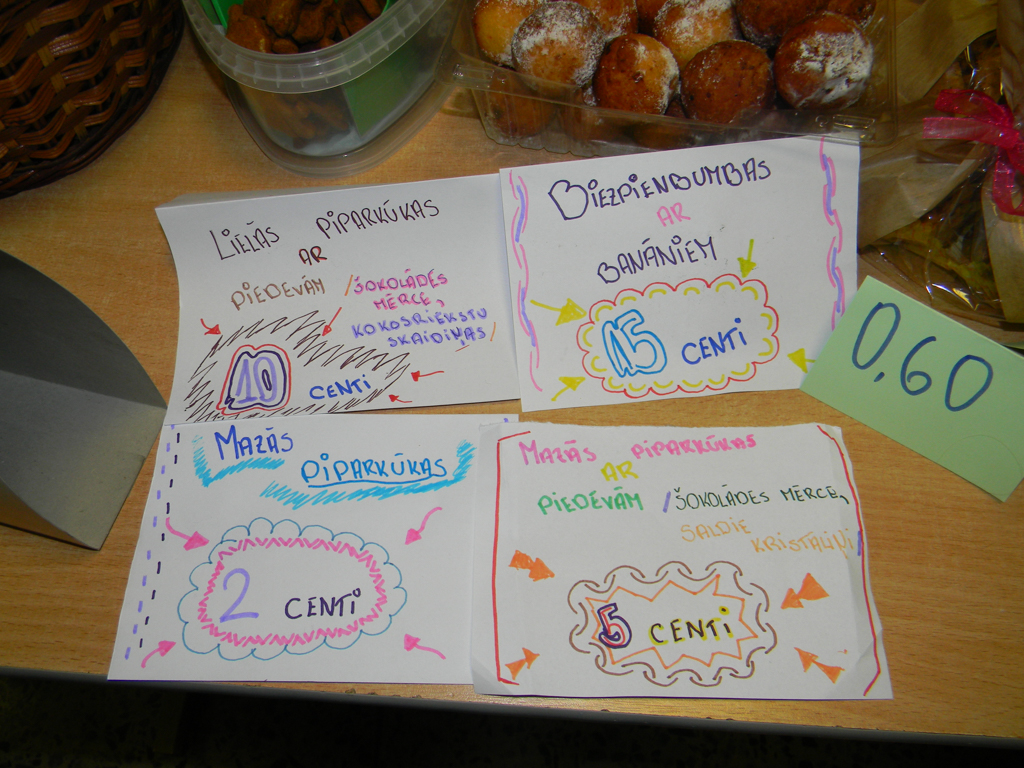 LIELĀS PIPARKŪKAS
AR
PIEDEVĀM /ŠOKOLĀDES
MĒRCE,
KOKOSRIEKSTU
SKAIDIŅAS/
10 CENTI
BIEZPIENBUMBAS
AR
BANĀNIEM
15 CENTI
0,60
MAZĀS
PIPARKŪKAS
2 CENTI
MAZĀS PIPARKŪKAS
AR
PIEDEVĀM /ŠOKOLĀDES MĒRCE,
SALDIE
KRISTALIŅI/
5 CENTI